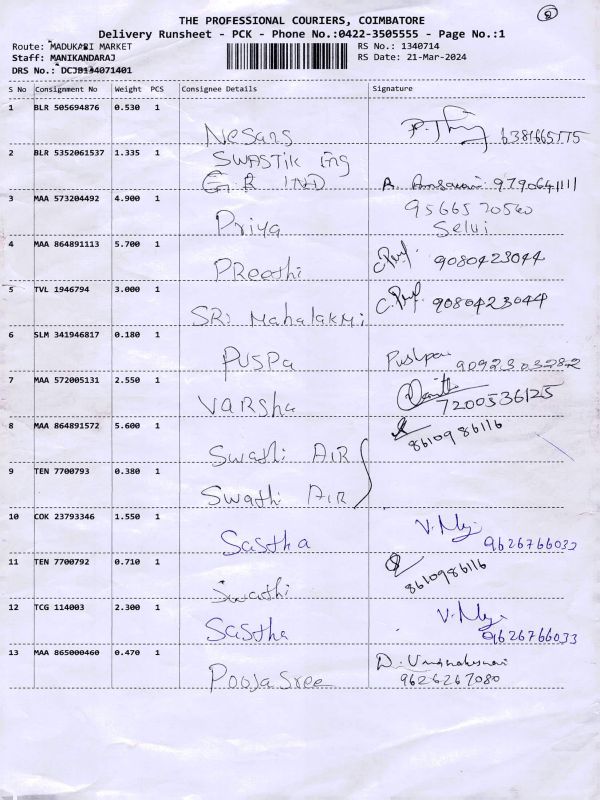 2
THE PROFESSIONAL COURIERS, COIMBATORE
Delivery Runsheet - PCK - Phone No.:0422-3505555 - Page No.:1
Route: MADUKARI MARKET RS No.: 1340714
Staff: MANIKANDARAJ RS Date: 21-Mar-2024
DRS No.:
S No Consignment No Weight PCS Consignee Details Signature
1 BLR 505694876 0.530 1
Nesans 6381665775
2 BLR 5352061537 1.335 1 SWASTIK Eng
G.R IND A. 9790641111
3 MAA 573204492 4.900 1 9566570540
Priya Selvi
4 MAA 864891113 5.700 1
Preethi 9080423044
5 TVL 1946794 3.000 1
SRI Mahalakmi 9080423044
6 SLM 341946817 0.180 1
PUSPa Pushpa 9092303282
7 MAA 572005131 2.550 1
VARSha 7200536125
8 MAA 864891572 5.600 1
Swathi AIR 8610986116
9 TEN 7700793 0.380 1
Swathi AIR
10 COK 23793346 1.550 1
Sastha 9626766033
11 TEN 7700792 0.710 1
Swathi 8610986116
12 TCG 114003 2.300 1
Sastha 9626766033
13 MAA 865000460 0.470 1 D.
Poojasree 9626267080